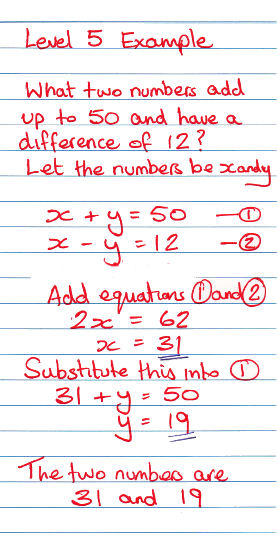 Level 5 Example
What two numbers add
up to 50 and have a
difference of 12?
Let the numbers be x and y
x + y = 50 — ①
x - y = 12 — ②
Add equations ① and ②
2x = 62
x = 31
Substitute this into ①
31 + y = 50
y = 19
The two numbers are
31 and 19